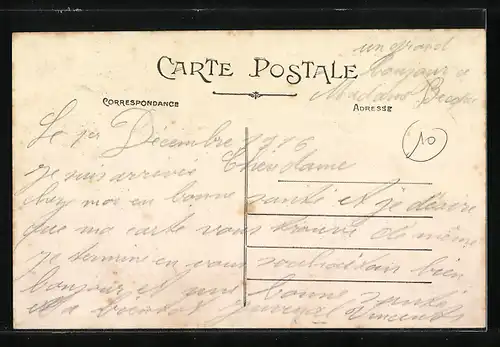 un grand
bonjour a
Madame
CARTE POSTALE
CORRESPONDANCE
ADRESSE
10
Le 1er Décembre 1916
Chère dame
je suis arrivée
chez moi en bonne santé et je désire
que ma carte vous trouve de même
je termine en vous souhaitant bien
bonjour et une bonne santé
et a bientot Vincent